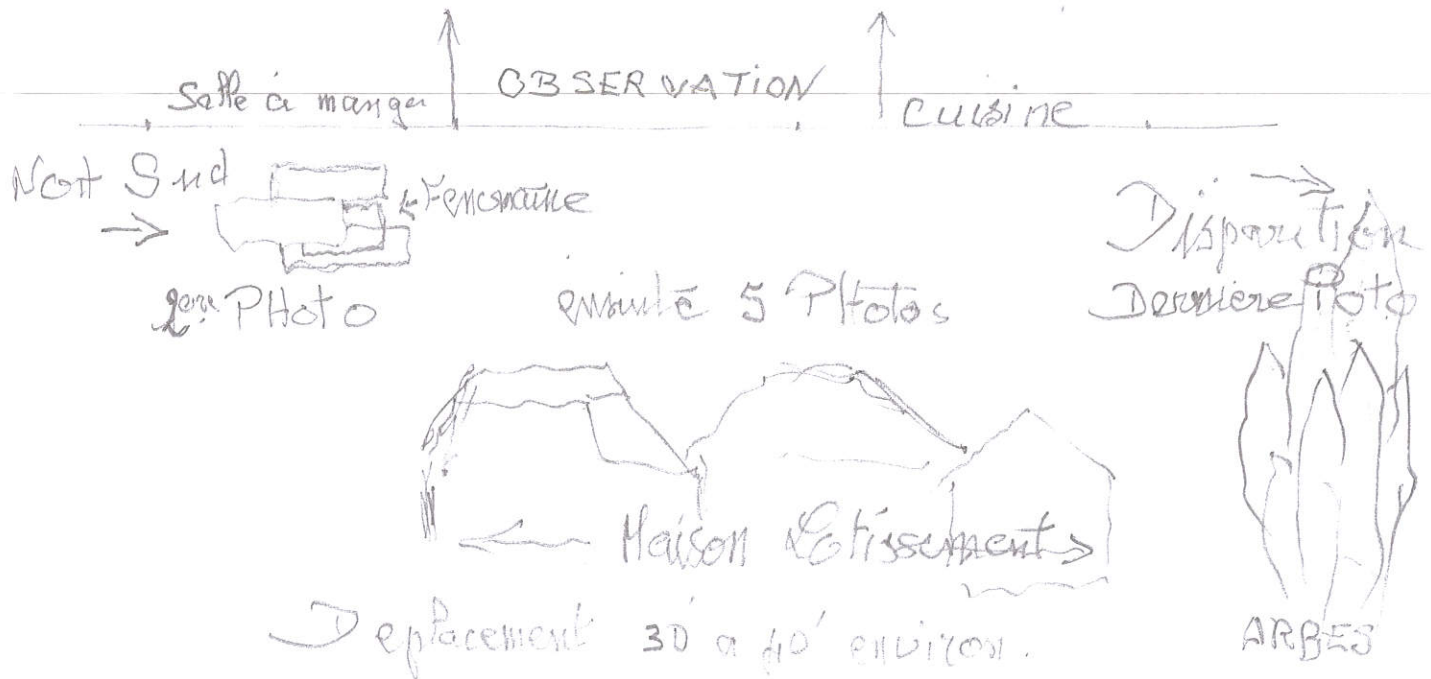 Salle à manger OBSERVATION cuisine
Nort Sud
Fenomaine
Disparition
1ere PHoto
ensuite 5 PHotos
Derniere Foto
Maison Lotissement
Deplacement 30' a 40' environ.
ARBES